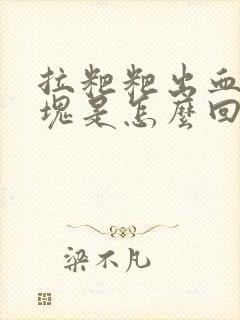 拉粑粑出血
塊是怎麼回
梁不凡